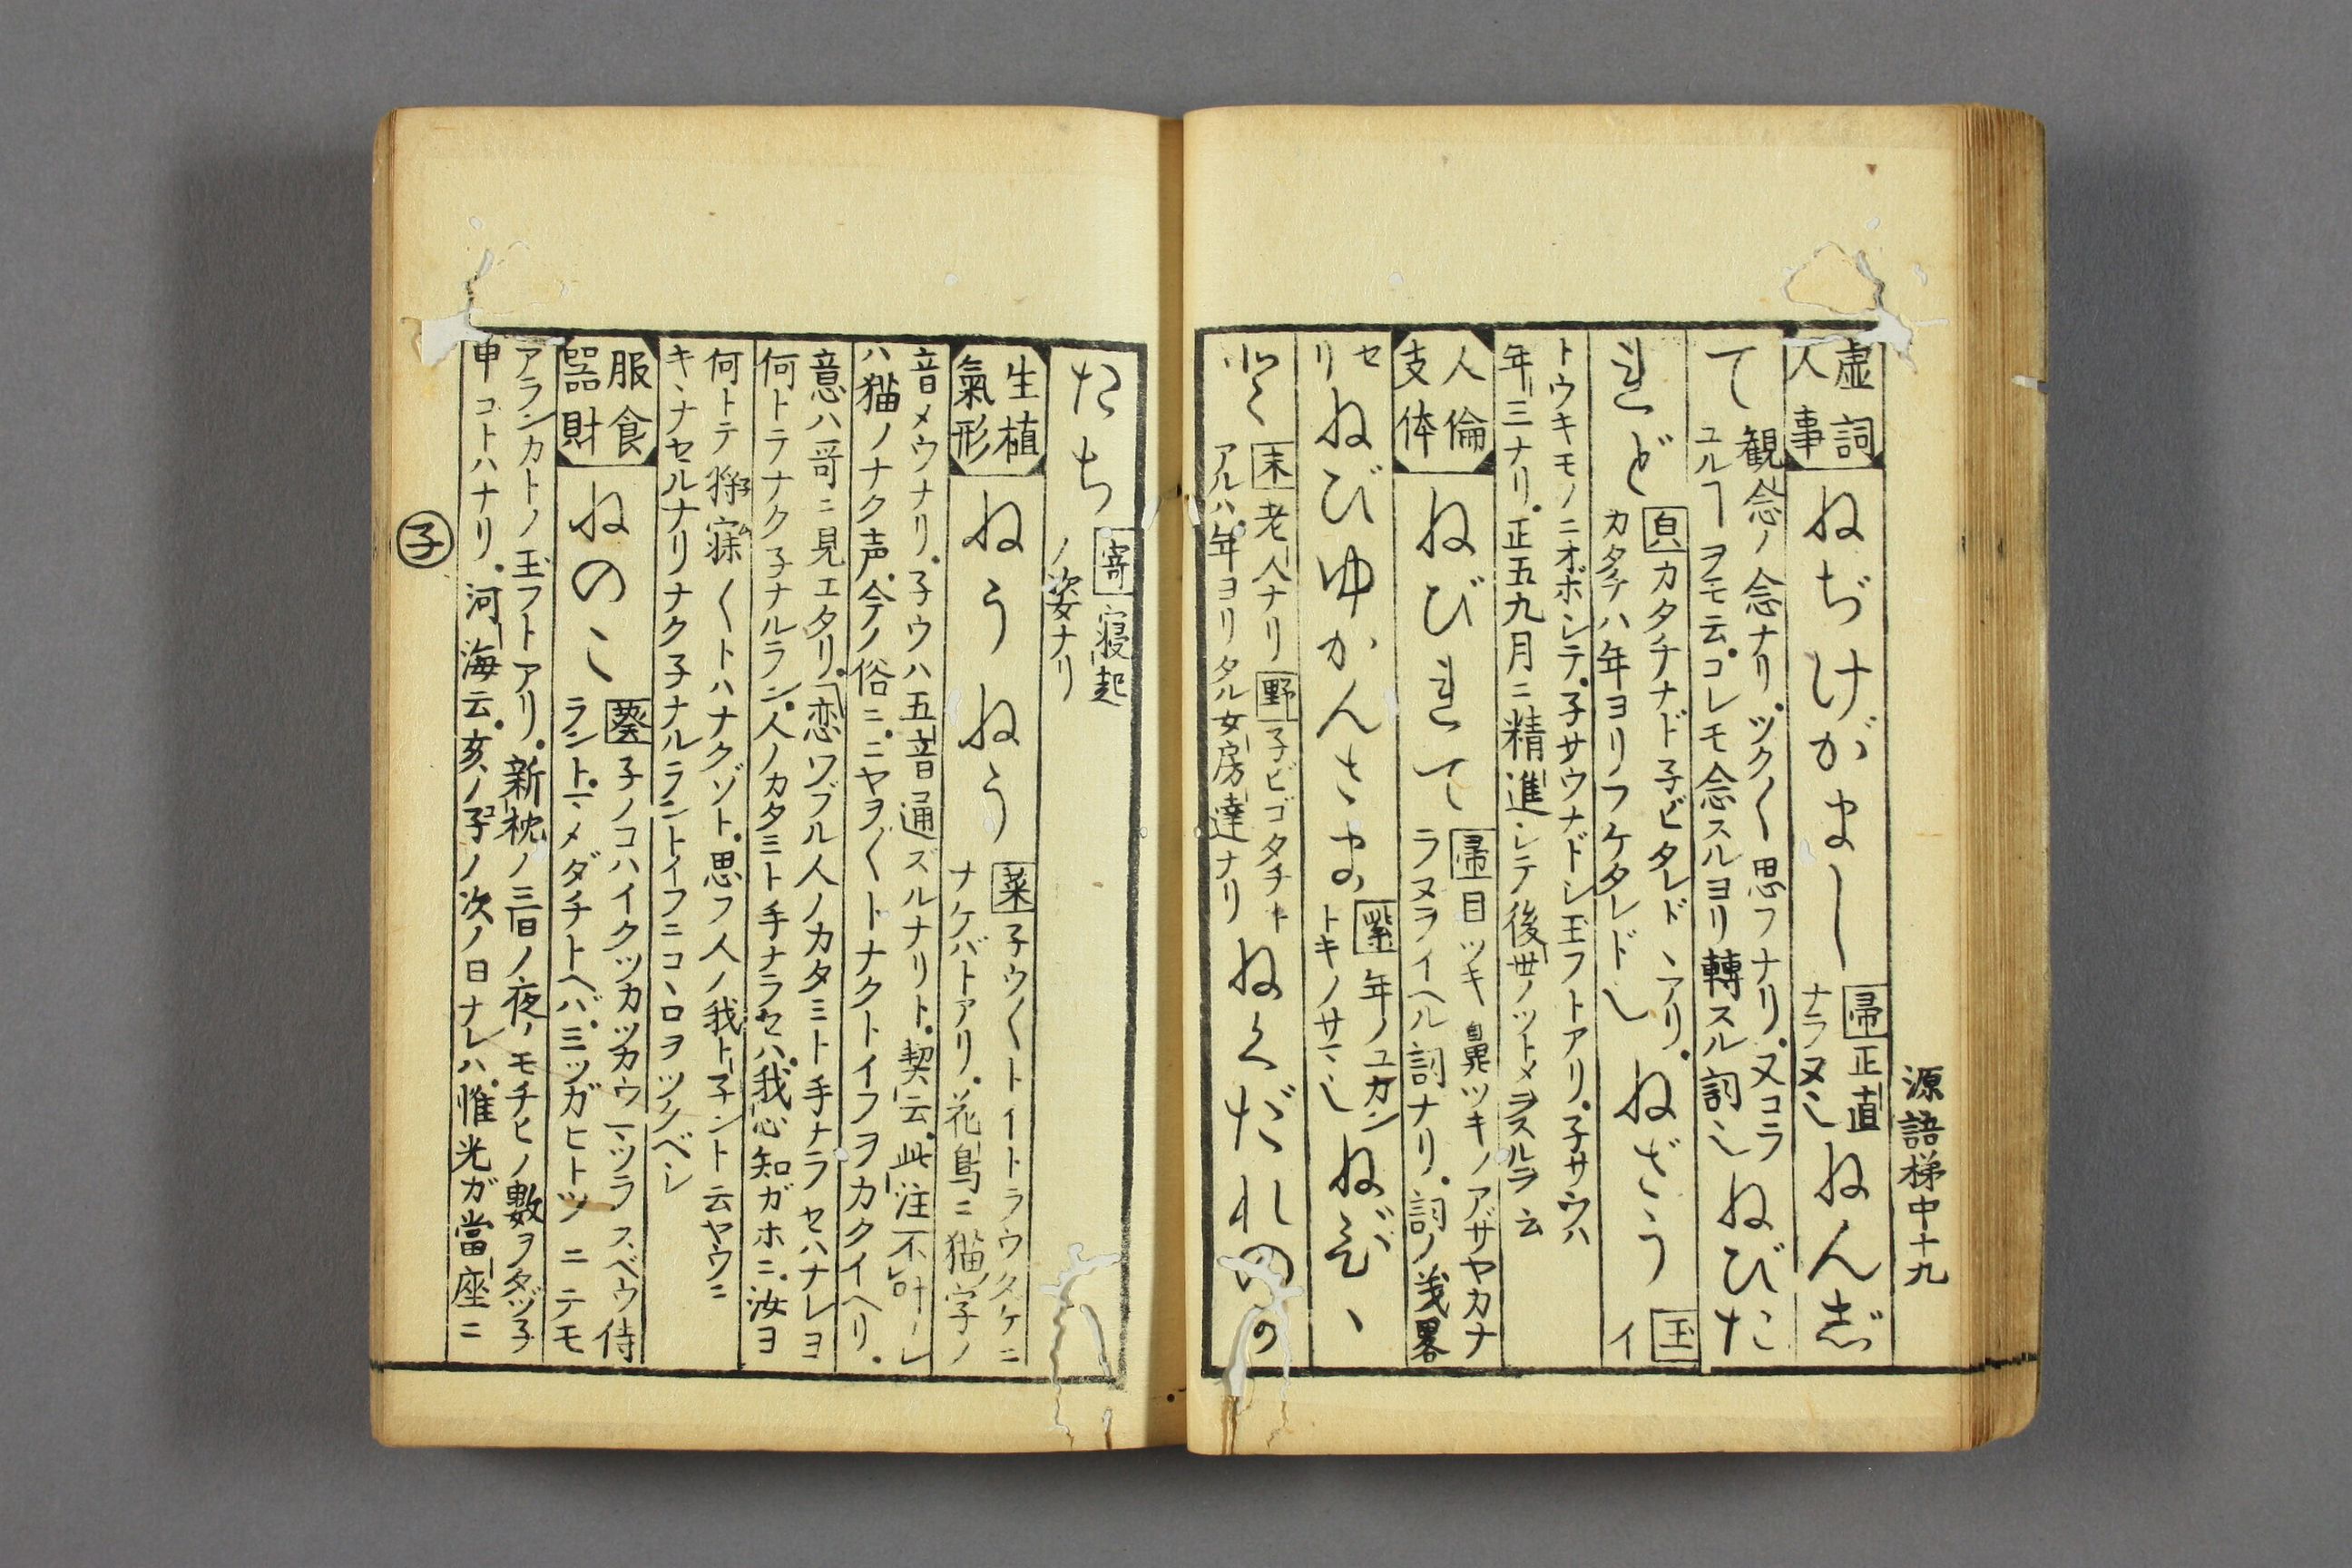 源語梯中十九
虚詞
人事
ねぢけがまし
帚 正直
ナラヌ也
ねんじ
て
観念ノ念ナリツク〱思フナリ又コラ
ユルヿヲモ云コレモ念スルヨリ轉スル詞也
ねびた
れど
カタチナド子ビタレドヽアリ
カタチハ年ヨリフケタレド也
ねざう
玉
イ
トウキモノニオボシテ子サウナドシ玉フトアリ子サウハ
年三ナリ正五九月ニ精進シテ後世ノツトメヲスルヲ云
人倫
支体
ねびれて
帚 目ツキ鼻ツキノアザヤカナ
ラヌヲイヘル詞ナリ詞ノ義畧
セ
リ
ねびゆかんさま
紫 年ノユカン
トキノサマ也
ねび
末 老人ナリ 野 子ビゴタチト
アルハ年ヨリタル女房達ナリ
ねくだれのゝ
たち
寄 寝起
ノ姿ナリ
生植
氣形
ねうねう
菜 子ウ〱トイトラウタケニ
ナケバトアリ花鳥ニ猫字ノ
音メウナリ子ウハ五音通ズルナリト契云此注不叶
ハ猫ノナク声今ノ俗ニニヤヲ〱トナクトイフヲカクイヘリ
意ハ哥ニ見エタリ恋ワブル人ノカタミト手ナラセハナレヨ
何トテナク子ナルラン人ノカタミト手ナラセハ我心知ガホニ汝ヨ
何トテ〱トハナクゾト思フ人ノ我ト子ント云ヤウニ
キヽナセルナリナク子ナルラントイフニコヽロヲツクベシ
服食
器財
ねのこ
葵 子ノコハイクツカツカウマツラスベウ侍
ラントマメダチトヘバ三ツガヒトツニテモ
アランカトノ玉フトアリ新枕ノ三日ノ夜ノモチヒノ數ヲタヅ子
申コトハナリ河海云亥ノ子ノ次ノ日ナレハ惟光ガ當座ニ
子